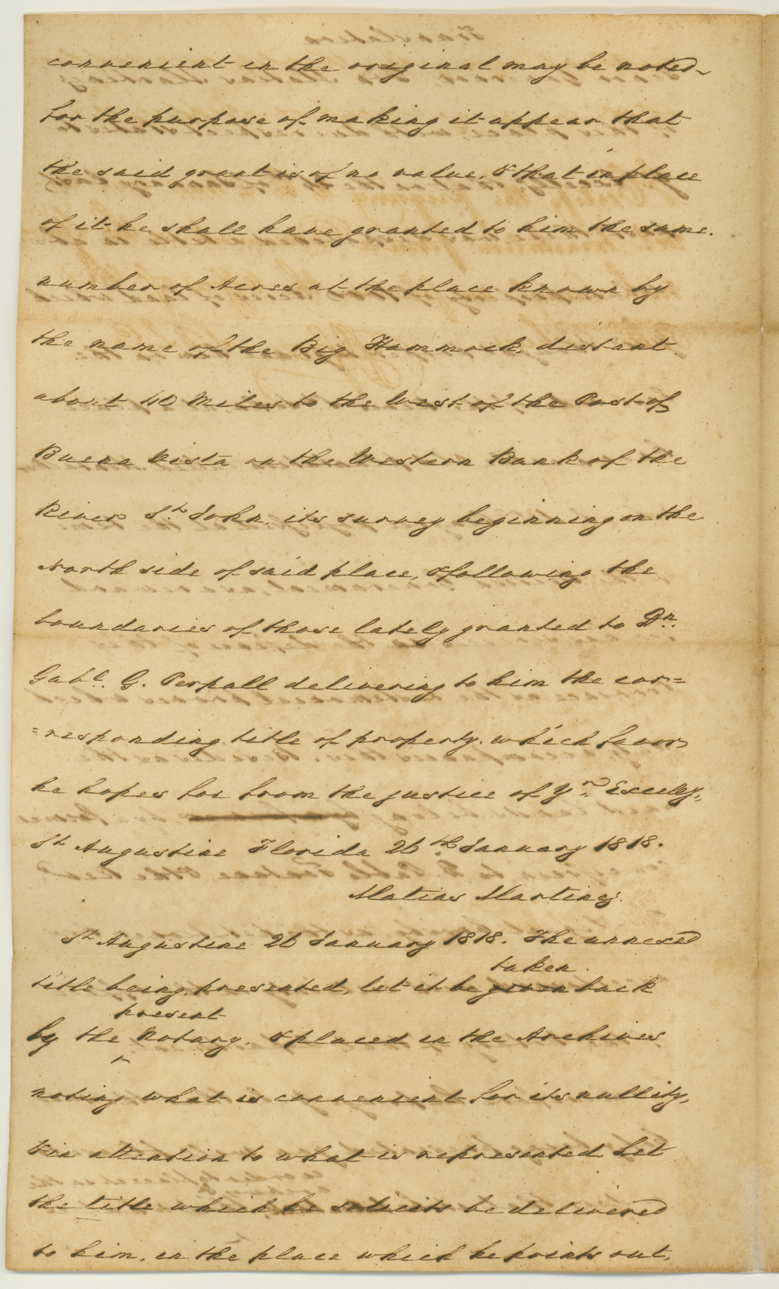 convenient in the original may be noted
for the purpose of making it appear that
the said grant is of no value, & that in place
of it he shall have granted to him the same
number of Acres at the place known by
the name of the Big Hammock, distant
about 40 Miles to the West of the Post of
Buena Vista on the Western Bank of the
River St John, its survey beginning on the
North side of said place, & following the
boundaries of those lately granted to Dn.
Gabl. G. Perpall delivering to him the cor=
=responding title of property. which favor
he hopes for from the justice of Yr. Excelly,
St Augustine Florida 26th January 1818.
Matias Martinez.
St Augustine 26 January 1818. The annexed
taken
title being presented, let it be given back
present
by the Notary, & placed in the Archives
noting what is convenient for its nullity,
& in attention to what is represented let
the title which he solicits be delivered
to him, in the place which he points out,